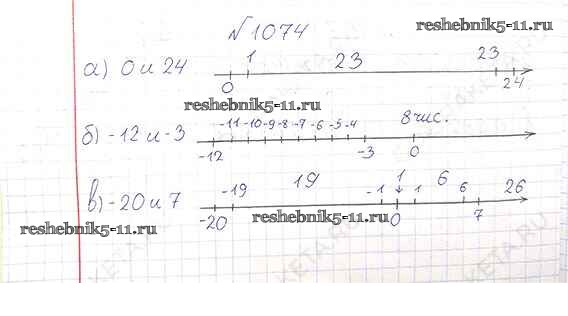 №1074
reshebnik5-11.ru
а) 0 и 24 0 1 23 23 24
reshebnik5-11.ru
б) -12 и -3 -12 -11 -10 -9 -8 -7 -6 -5 -4 -3 0 8 чис.
в) -20 и 7 -20 -19 19 -1 1 0 1 6 6 7 26
reshebnik5-11.ru
reshebnik5-11.ru